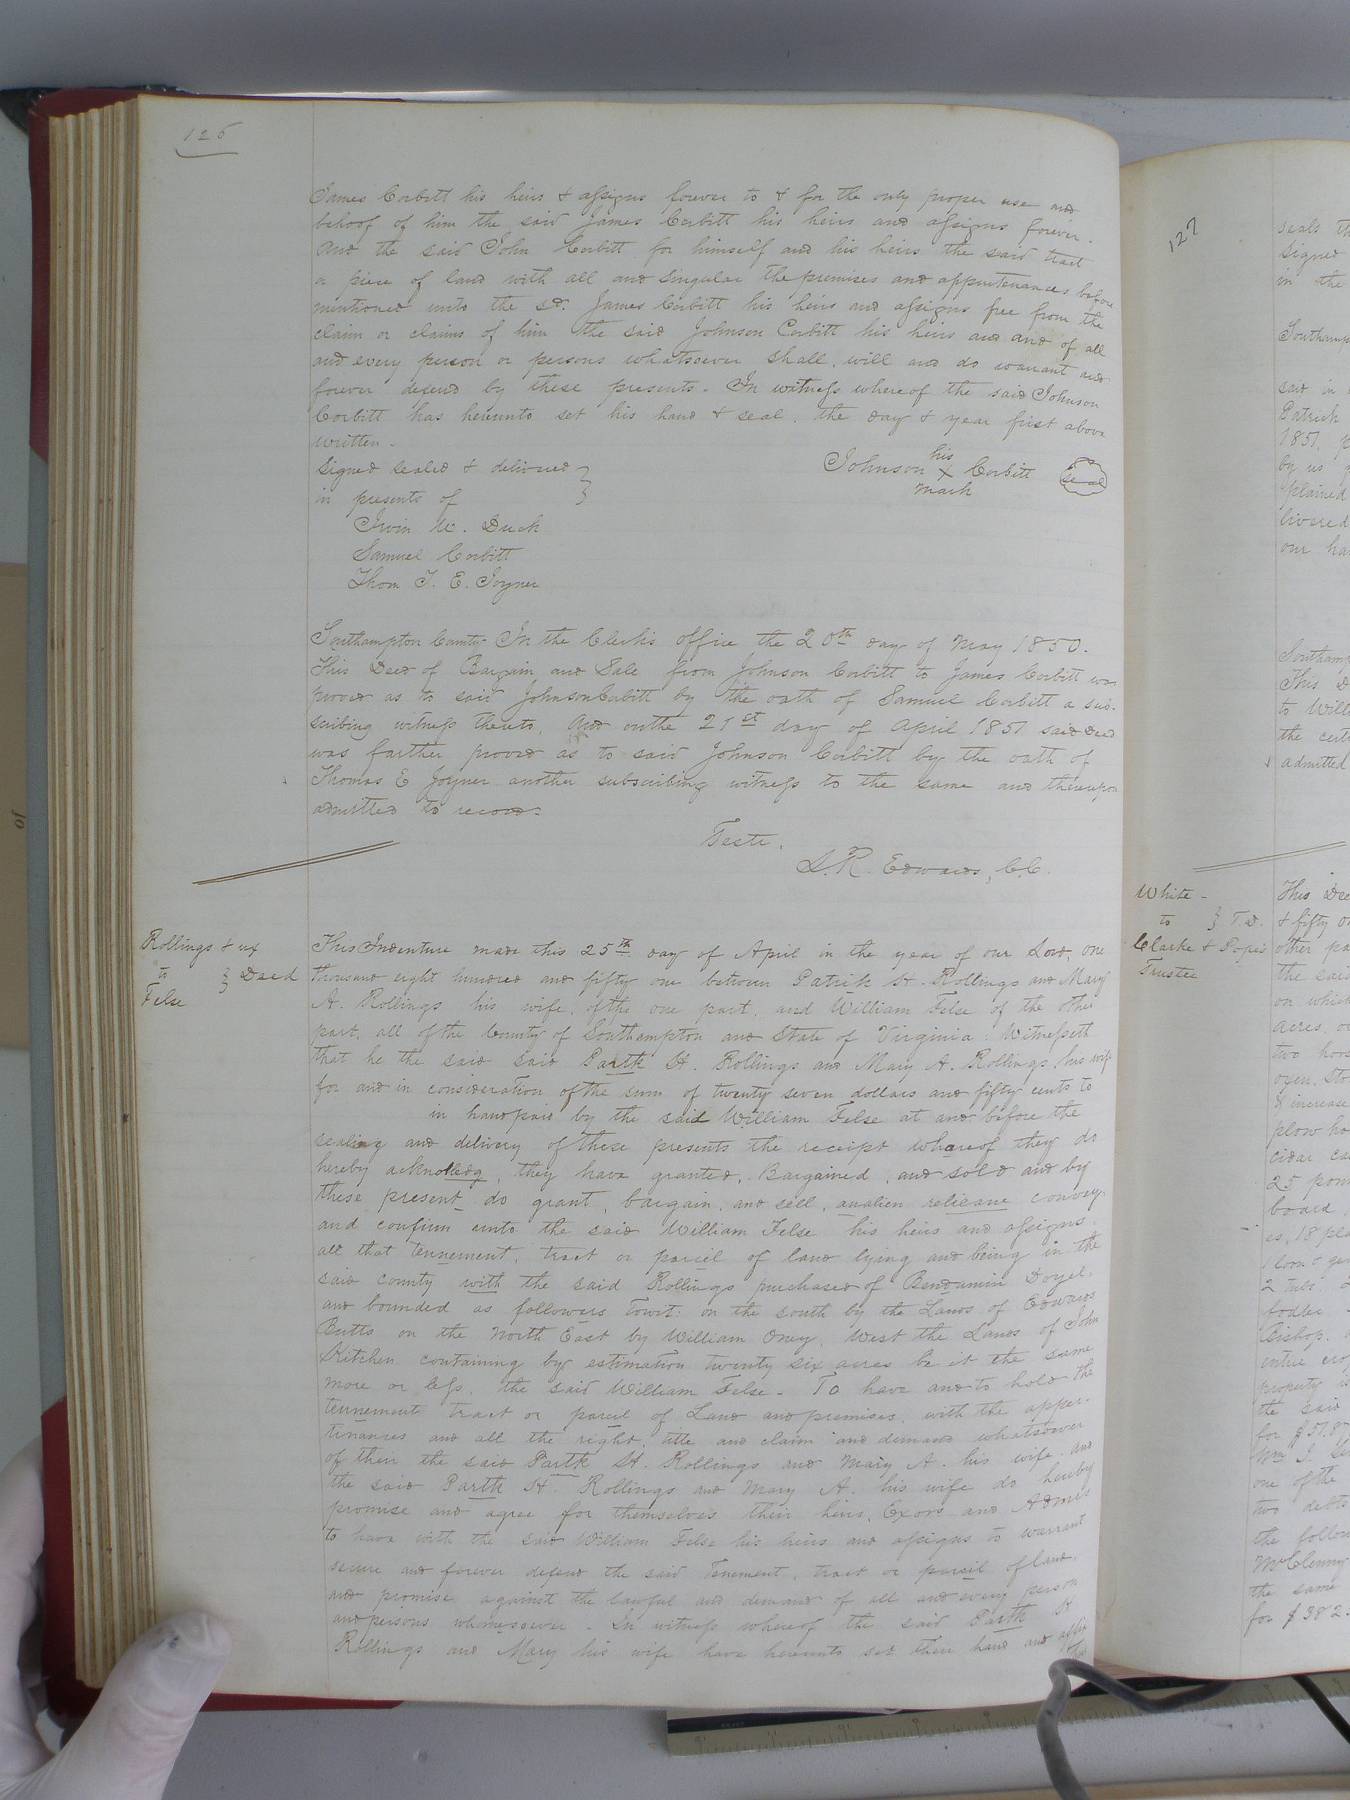 126
James Corbitt his heirs & assigns forever to & for the only proper use and
behoof of him the said James Corbitt his heirs and assigns forever.
And the said John Corbitt for himself and his heirs the said tract
or piece of land with all and singular the premises and appurtenances before
mentioned unto the sd. James Corbitt his heirs and assigns free from the
claim or claims of him the said Johnson Corbitt his heirs and and of all
and every person or persons whatsoever shall, will and do warrant and
forever defend by these presents. In witness whereof the said Johnson
Corbitt has hereunto set his hand & seal. the day & year first above
written.
Signed sealed & delivered }
in presents of
his
Johnson X Corbitt seal
mark
Irvin W. Duck
Samuel Corbitt
Thom T. E. Joyner
Southampton County In the Clerk's office the 20th day of May 1850.
This Deed of Bargain and Sale from Johnson Corbitt to James Corbitt was
proved as to said Johnson Corbitt by the oath of Samuel Corbitt a sub-
scribing witness thereto, And on the 21st day of April 1851 said Deed
was farther proved as to said Johnson Corbitt by the oath of
Thomas E Joyner another subscribing witness to the same and thereupon
admitted to record.
Teste,
L. R. Edwards, C.C.
Rollings & ux
to } Deed
Felse
This Indenture made this 25th day of April in the year of our Lord, one
thousand eight hundred and fifty one between Patrik H. Rollings and Mary
A. Rollings his wife, of the one part, and William Felse of the other
part, all of the County of Southampton and State of Virginia: Witnesseth
that he the said said Partk H. Rollings and Mary A. Rollings, his wife
for and in consideration of the sum of twenty seven dollars and fifty cents to
in hand paid by the said William Felse at and before the
sealing and delivery of these presents the receipt whareof they do
hereby acknoledg, they have granted, Bargained, and sold and by
these present do grant, bargain, and sell, analien relieane convey
and confirm unto the said William Felse his heirs and assigns.
all that tennement, tract or parcil of land lying and being in the
said county with the said Rollings purchased of Bendamin Doyel.
and bounded as followers Towit: on the south by the Lands of Edwards
Butts on the North East by William Oney, West the Lands of John
Kitchen containing by estimation twenty six acres be it the same
more or less, the said William Felse - To have and to hold the
tennement tract or parcil of Land and premises, with the apper-
tinances and all the right, title and claim and demand whatsoever
of their the said Partk H. Rollings and Mary A. his wife and
the said Partk H. Rollings and Mary A. his wife do hereby
promise and agree for themselves their heirs, Exors and Admrs
to have with the said William Felse his heirs and assigns to warrant
secure and forever defend the said Tenement, tract or parcil of land.
and promise against the lawful and demand of all and every person
and persons whomsoever. In witness whereof the said Partk H
Rollings and Mary his wife have hereunto set their hand and affix
127
seals
Signed
in the
said in
Patrick
1851,
by us
plained
livered
our
This
to
the
admitted
White
to } T.D.
Clarke & Pope's
Trustee
This
& fifty
other
the said
on which
acres,
two
oxen,
& increase
plow
cidar
25
board,
2
fodder
Bishop,
entire
property
the said
for
one of the
two debts
the
McClenny
the same
for $382